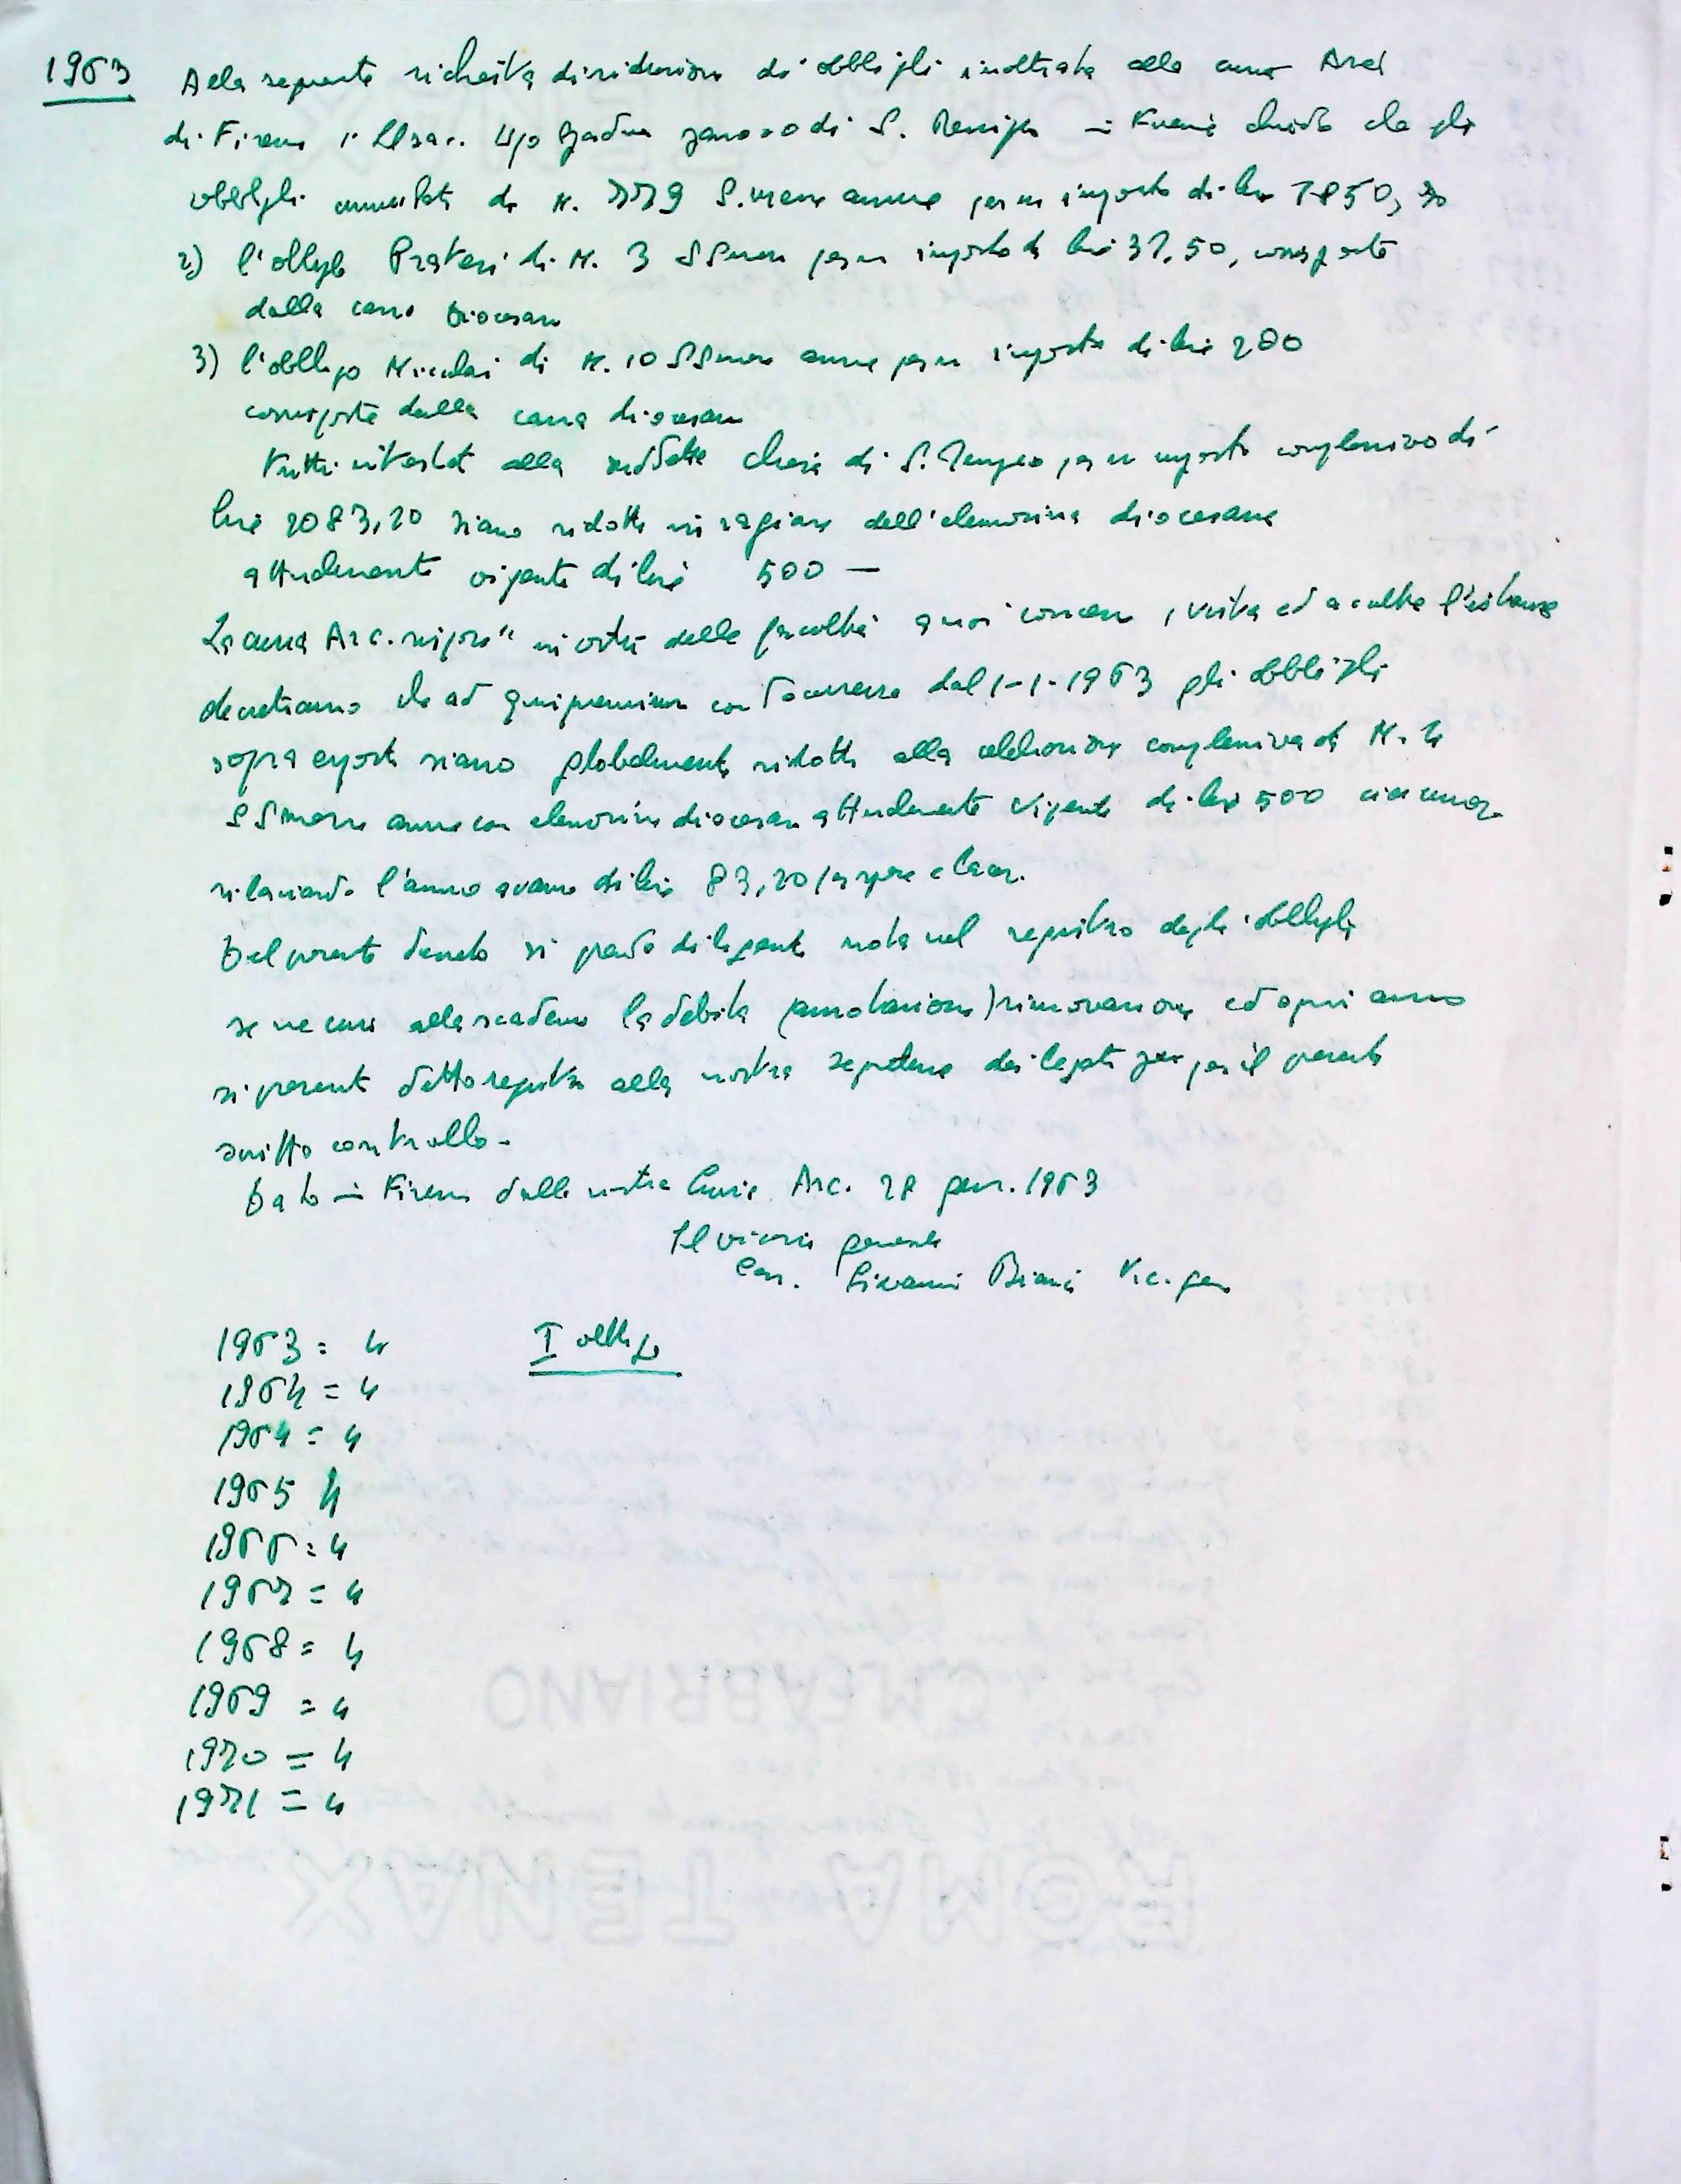 1963 Alla seguente richiesta di riduzione di obblighi inoltrata alla curia Arci
di Firenze di S. Remigio in Firenze chiede che gli
obblighi cumulati di N. S. messe annue per un importo di lire 1850,70
2) l'obbligo Prateri di N. 3 SS messe per un importo di lire 37,50, corrisposte
dalla cassa Diocesana
3) l'obbligo Niccolai di N. 10 SS messe annue per un importo di lire 200
corrisposte dalla cassa diocesana
tutti intestati alla suddetta chiesa di S. per un importo complessivo di
lire 2083,20 siano ridotti in ragione dell'elemosina diocesana
attualmente vigente di lire 500 —
La curia Arc. in virtù delle facoltà a noi concesse, vista ed accolta l'istanza
decretiamo che ad quinquennium con decorrenza dal 1-1-1963 gli obblighi
sopra esposti siano globalmente ridotti alla celebrazione complessiva di N. 4
SS messe annue con elemosina diocesana attualmente vigente di lire 500 ciascuna
rilasciando l'annuo avanzo di lire 83,20 per spese e tasse.
Del presente decreto si prenda diligente nota nel registro degli obblighi
se ne curi alla scadenza la debita (annotazione) rinnovazione ed ogni anno
si presenti detto registro alla nostra segreteria dei legati per il presente
scritto controllo -
Dato in Firenze dalla nostra Curia Arc. 28 genn. 1963
Il vicario generale
Can. Giovanni Bianchi Vic. gen
1963 = 4 I obbligo
1964 = 4
1964 = 4
1965 4
1966 = 4
1967 = 4
1968 = 4
1969 = 4
1970 = 4
1971 = 4
CM FABRIANO
ROMA TENAX